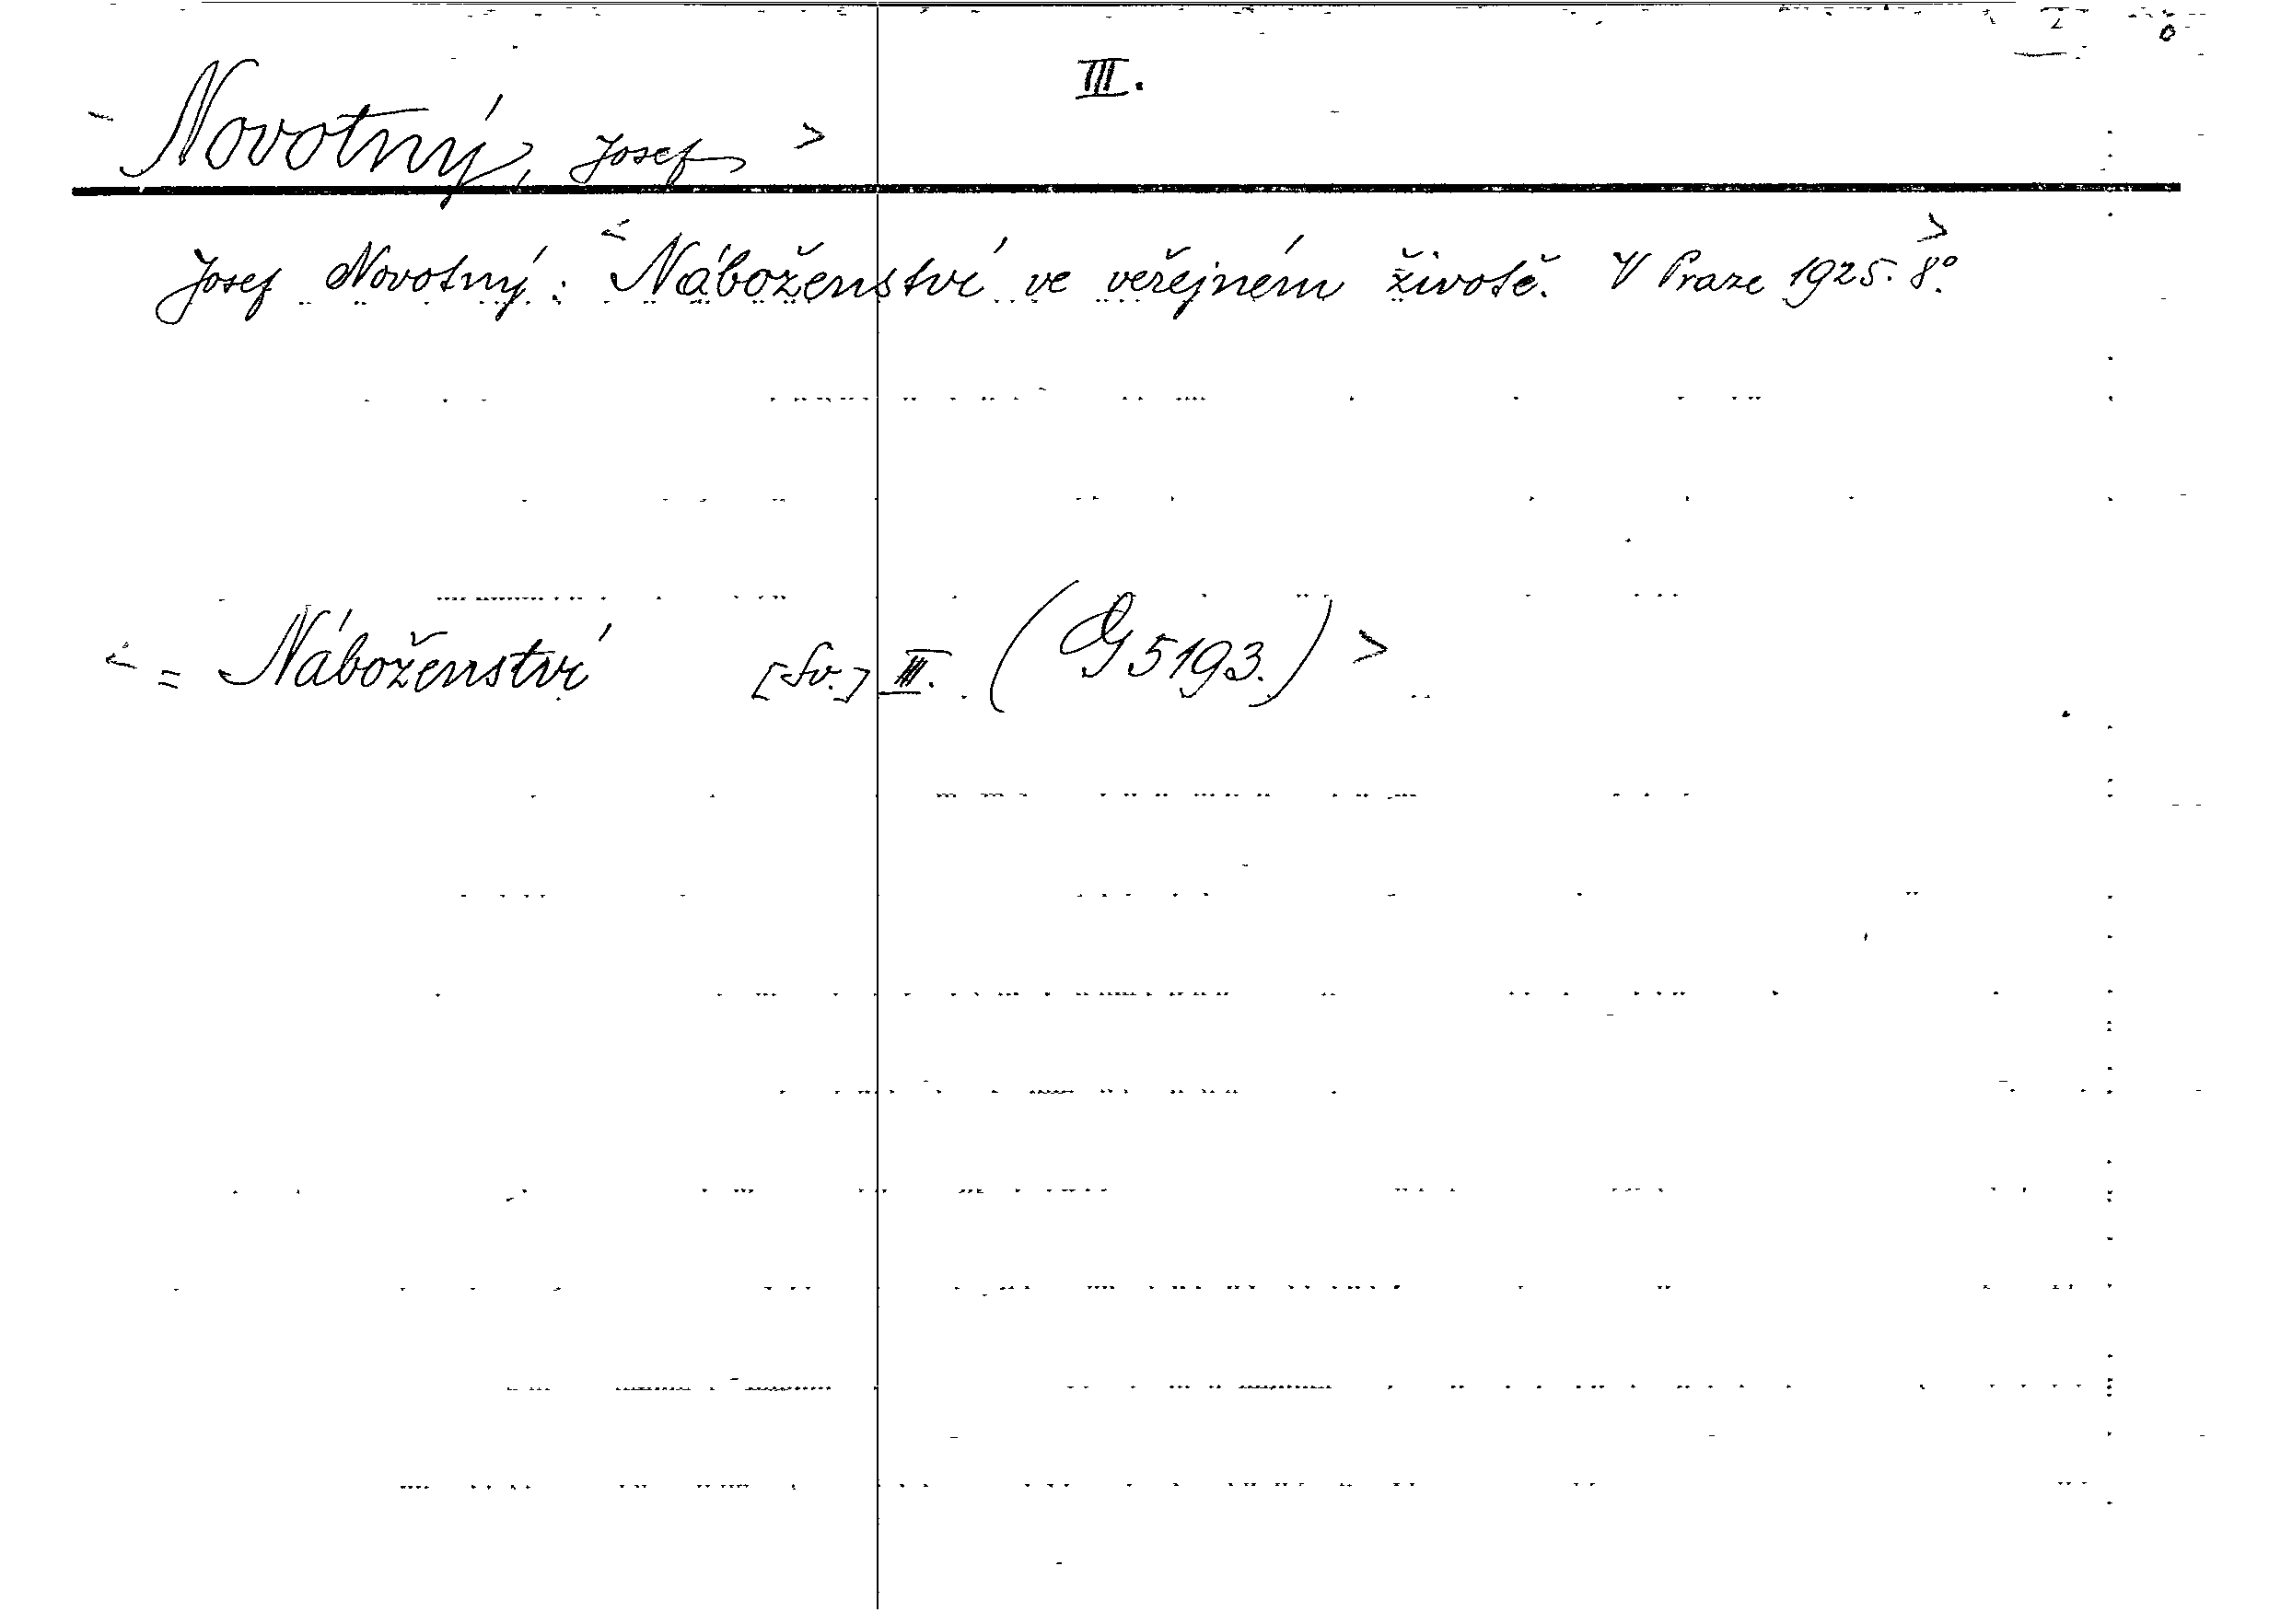 III.
Novotný, Josef >
Josef Novotný: < Náboženství ve veřejném životě. V Praze 1925. 8°. >
< = Náboženství [Sv.] III. (G 5193.) >